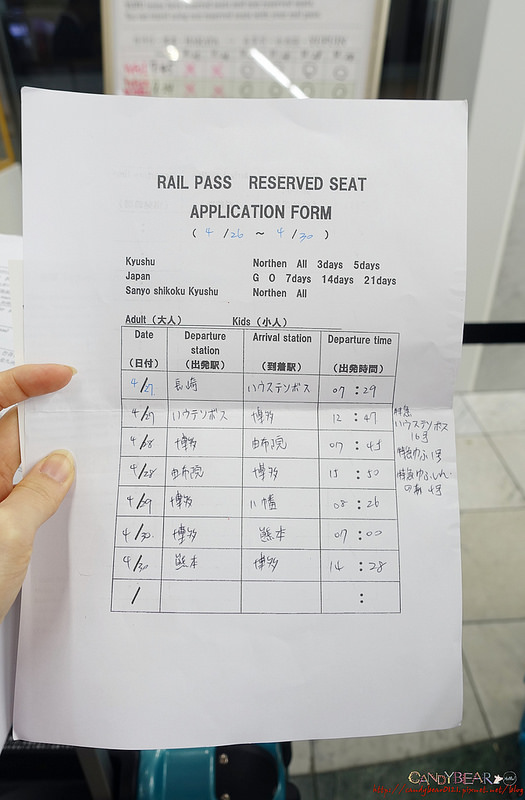 RAIL PASS RESERVED SEAT
APPLICATION FORM
( 4 /26 ~ 4 /30 )
Kyushu Northen All 3days 5days
Japan G O 7days 14days 21days
Sanyo shikoku Kyushu Northen All
Adult (大人) Kids (小人)
Date Departure station Arrival station Departure time
(日付) (出発駅) (到着駅) (出発時間)
4/27 長崎 ハウステンボス 07:29
4/27 ハウテンボス 博多 12:47
4/28 博多 由布院 07:45
4/28 由布院 博多 15:50
4/29 博多 八幡 08:26
4/30 博多 熊本 07:00
4/30 熊本 博多 14:28
/ :
特急
ハウステンボス
16号
特急ゆふ1号
CANDYBEAR
http://candybear0121.pixnet.net/blog